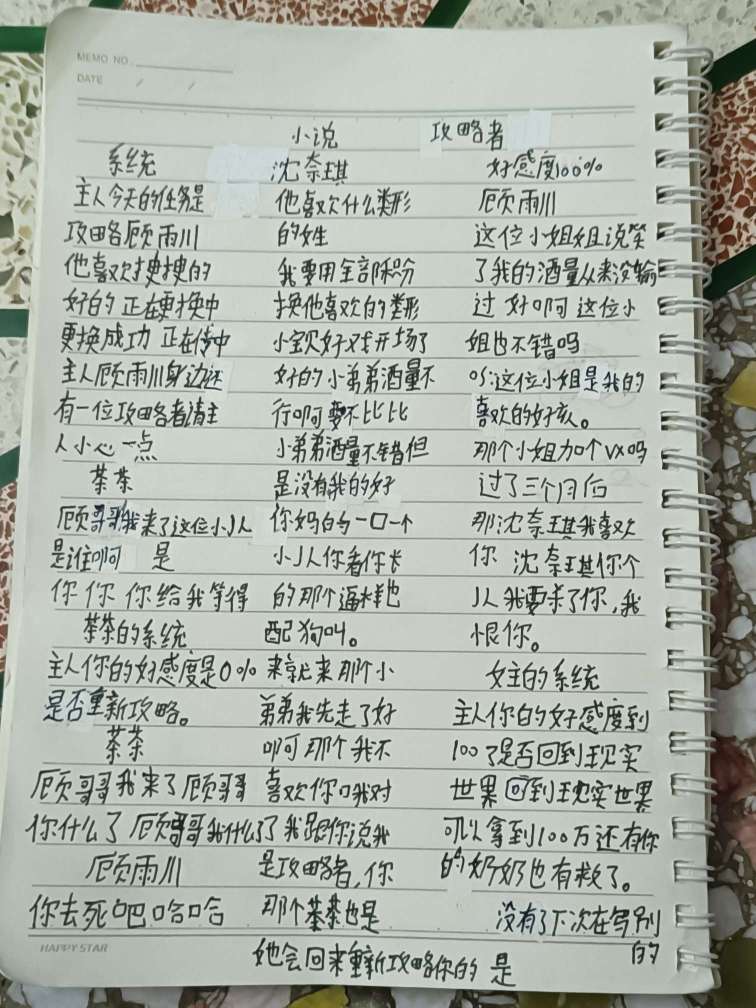 MEMO NO.
DATE / /
小说 攻略者
系统
主人今天的任务是
攻略顾雨川
他喜欢搜搜的
好的 正在更换中
更换成功 正在传中
主人顾雨川身边还
有一位攻略者请主
人小心一点
茶茶
顾哥哥我来了这位小人
是谁啊 是
你你你给我等得
茶茶的系统
主人你的好感度是0%
是否重新攻略。
茶茶
顾哥哥我来了顾哥哥
你什么了顾哥哥我什么了我跟你说我
顾雨川
你去死吧哈哈
沈奈琪
他喜欢什么类形
的姓
我要用全部积分
换他喜欢的类形
小宝贝好对开场了
好的小弟弟酒量不
行啊要不比比
小弟弟酒量不错但
是没有我的好
你妈的一口一个
小人你看你长
的那个逼样也
配狗叫。
来就来那个小
弟弟我先走了好
啊那个我不
喜欢你哦对
是攻略者,你
那个茶茶也是
她会回来重新攻略你的 是
好感度100%
顾雨川
这位小姐姐说笑
了我的酒量从来没输
过 好啊这位小
姐也不错吗
这位小姐是我的
喜欢的好亥。
那个小姐加个VX吗
过了三个月后
那沈奈琪我喜欢
你 沈奈琪你个
人我要杀了你,我
恨你。
女主的系统
主人你的好感度到
100了是否回到现实
世果回到现实世果
可以拿到100万还有你
的奶奶也有救了。
没有了下次在写别
的
HAPPY STAR